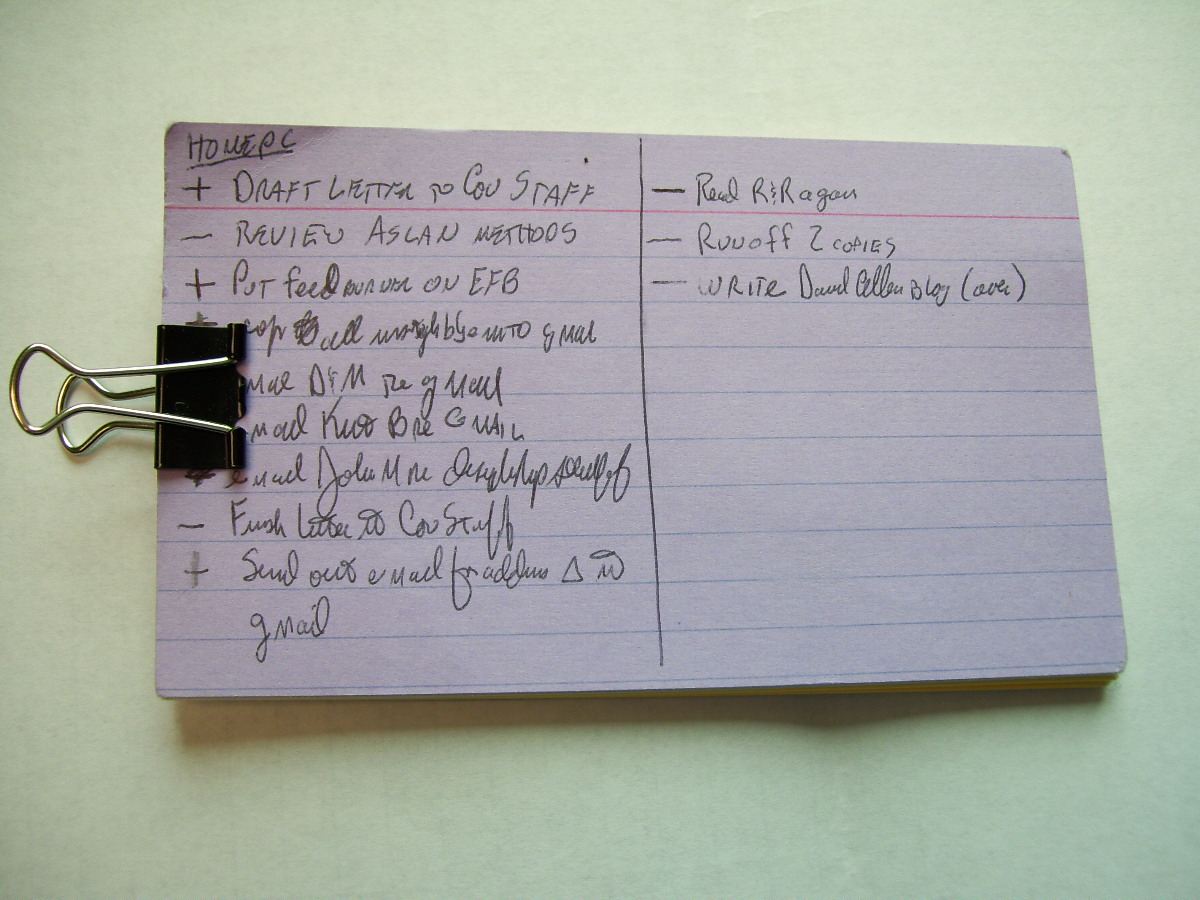 HOMEPC
+ DRAFT LETTER TO COV STAFF
— REVIEW ASLAN METHODS
+ PUT feedburner ON EFB
all into gmail
D&M re gmail
Kurt B re GMAIL
email John M re
— Finish Letter to Cov Staff
+ Send out email for address Δ to
gmail
— Read R&Ragan
— RUNOFF 2 COPIES
— WRITE David Allen Blog (over)